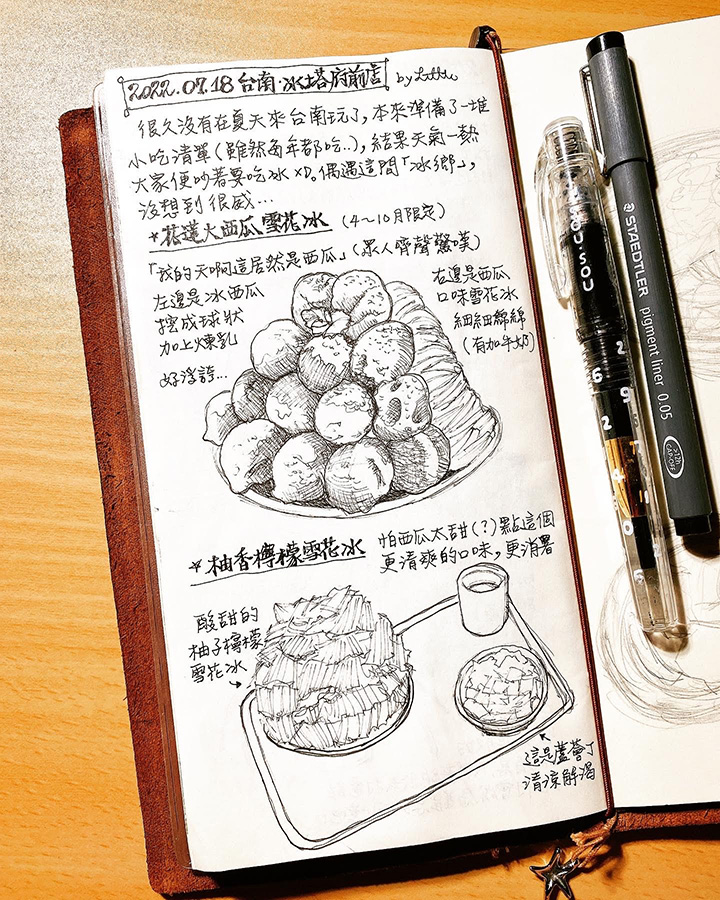 2022.07.18 台南·冰塔府前店
很久沒有在夏天來台南玩了,本來準備了一堆
小吃清單(雖然每年都吃..),結果天氣一熱
大家便吵著要吃冰XD。偶遇這間「冰鄉」,
沒想到很威…
*花蓮大西瓜雪花冰 (4~10月限定)
「我的天啊這居然是西瓜」(眾人齊聲驚嘆)
左邊是冰西瓜
挖成球狀
加上煉乳
好浮誇…
右邊是西瓜
口味雪花冰
細細綿綿
(有加牛奶)
*柚香檸檬雪花冰
怕西瓜太甜(?)點這個
更清爽的口味,更消暑
酸甜的
柚子檸檬
雪花冰
這是蘆薈丁
清涼解渴
SOU·SOU
STAEDTLER
pigment liner 0.05